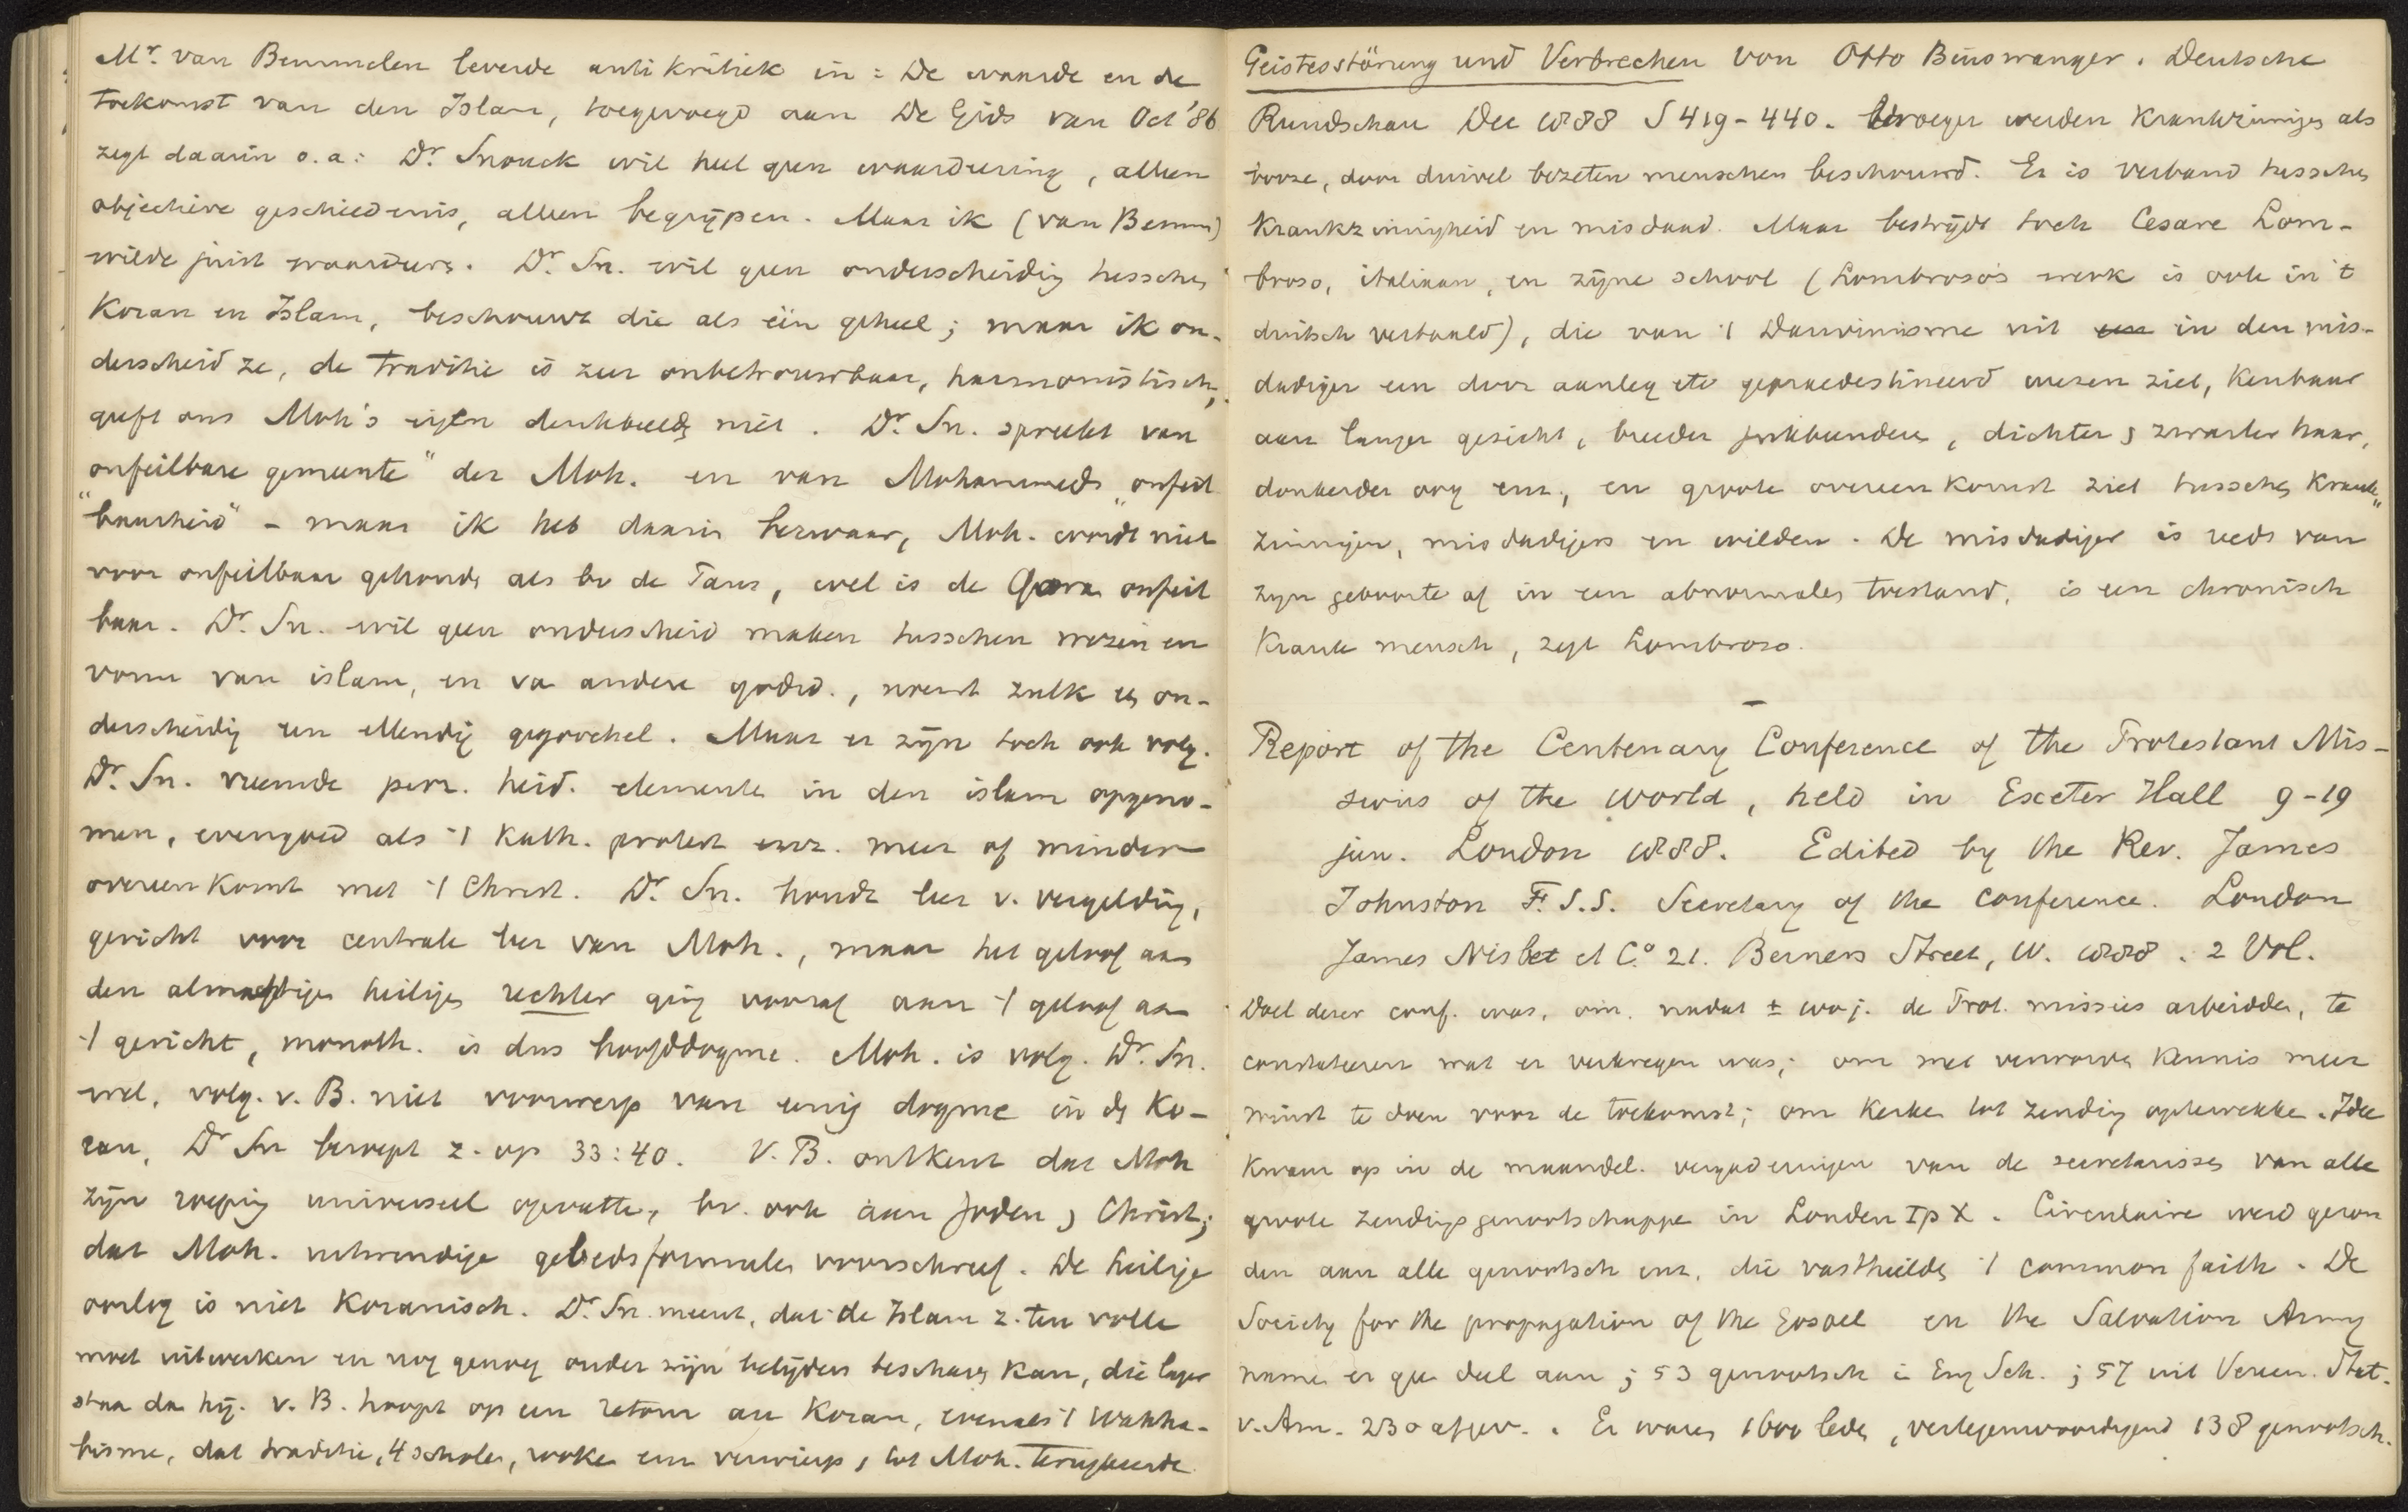 Mr. van Bemmelen leverde antikritiek in: De waarde en de
toekomst van den Islam, toegevoegd aan De Gids van Oct '86
zegt daarin o.a: Dr. Snouck wil heel geen waardeering, alleen
objectieve geschiedenis, alleen begrijpen. Maar ik (van Bemm)
wilde juist waardeere. Dr. Sn. wil geen onderscheidig tusschen
Koran en Islam, beschouwt die als één geheel; maar ik on-
derscheid ze, de traditie is zeer onbetrouwbaar, harmonistisch,
geeft ons Moh's eigen denkbeeldg niet. Dr. Sn. spreekt van
onfeilbare gemeente" der Moh. en van Mohammeds "onfeil
"baarheid" - maar ik heb daarin bezwaar, Moh. wordt niet
voor onfeilbaar gehoudn als bv de Paus, wel is de Qora onfeil
baar. Dr. Sn. wil geen onderscheid maken tusschen wezen en
vorm van islam, en va andere godsd., noemt zulk een on-
derscheidig een ellendig gegoochel. Maar er zijn toch ook volg.
Dr. Sn. vreemde perz. heid. elemente in den islam opgeno-
men, evengoed als 't Kath. protest enz. meer of minder
overeenkomt met 't Christ. Dr. Sn. houdt leer v. vergelding,
gericht voor centrale leer van Moh., maar het geloof aan
den almachtigen heiligen rechter ging vooraf aan 't geloof aan
't gericht, monoth. is dus hoofddogme. Moh. is volg. Dr. Sn.
wel, volg. v. B. niet voorwerp van eenig dogme in dg Ko-
ran, Dr Sn beroept z. op 33:40. V. B. ontkent dat Moh
zijn roeping universeel opvatte, bv. ook aan Joden, Christ;
dat Moh. uitwendige gebedsformules voorschreef. De heilige
oorlog is niet Koranisch. Dr. Sn. meent, dat de Islam z. ten volle
moet uitwerken en nog genoeg onder zijn belijders beschaven kan, die lager
staan da hij. v. B. hoopt op een retour au Koran, evenals 't Wahha-
bisme, dat traditie, 4 schole, enz verwierp, tot Moh. terugkeerde
Geistesstörung und Verbrechen von Otto Binswanger. Deutsche
Rundschau Dec 1888 S 419-440. Vroeger werden Krankzinniges als
booze, door duivel bezeten menschen beschouwd. Er is verband tusschen
Krankzinnigheid en misdaad. Maar bestrijdt toch Cesare Lom-
broso, italiaan, en zijne school (Lombroso's werk is ook in 't
duitsch vertaald), die van 't Darwinisme uit in den mis-
dadiger een door aanleg etc gepraedestineerd wezen ziet, Kenbaar
aan langer gezicht, breeder jukbeendere, dichter, zwarter haar,
donkerder oog enz., en groote overeenkomst ziet tusschen Krank-
zinnigen, misdadigers en wilden. De misdadiger is reeds van
zijn geboorte af in een abnormalen toestand, is een chronisch
Krank mensch, zegt Lombroso.
—
Report of the Centenary Conference of the Protestant Mis-
sions of the world, held in Exeter Hall 9-19
jun. London 1888. Edited by the Rev. James
Johnston F. S.S. Secretary of the conference. London
James Nisbet et Co. 21. Berners Street, W. 1888. 2 Vol.
Doel dezer conf. was, om, nadat ± 100 j. de Prot. missies arbeidden, te
constateeren wat er verkregen was; om met verworve kennis meer
winst te doen voor de toekomst; om Kerken tot zending opte wekke. Idee
kwam op in de maandel. vergaderingen van de secretarisses van alle
groote zendingsgenootschappe in Londen. Circulaire werd gezon
den aan alle genootsch enz. die vasthielde 't common faith. De
Society for the propagation of the Gospel en the Salvation Army
namen er geen deel aan; 53 genootsch i Eng Sch.; 57 uit Vereen. Stat.
v. Am. 230 afgev. . Er waren 1600 lede, vertegenwoordigend 138 genootsch.